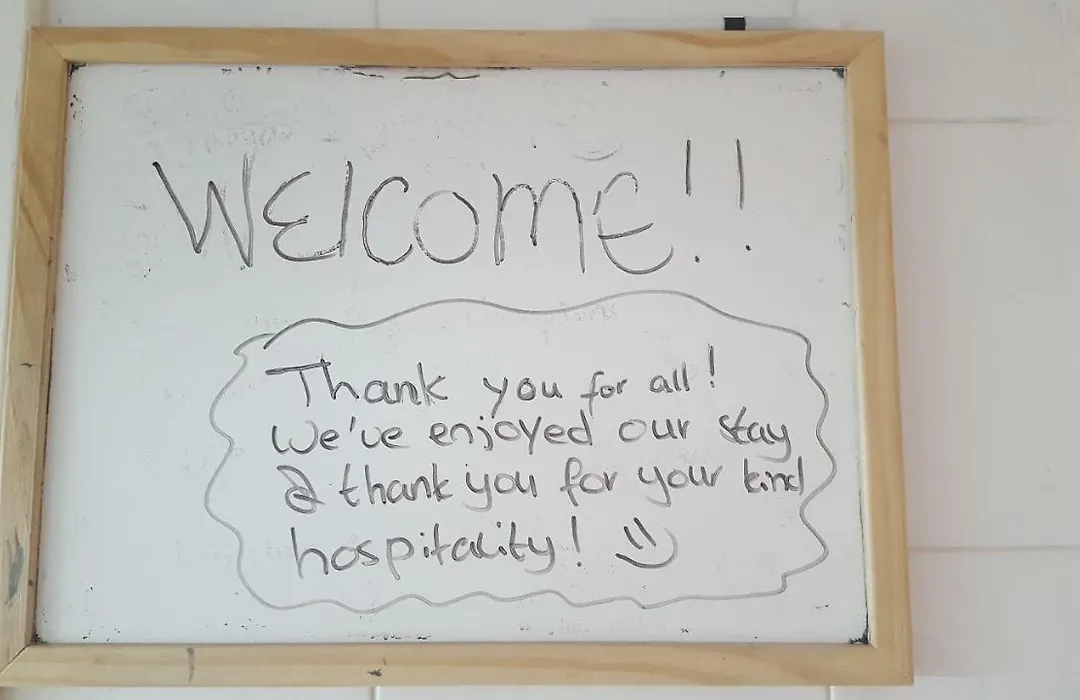 WELCOME!!
Thank you for all!
We've enjoyed our stay
& thank you for your kind
hospitality! =)